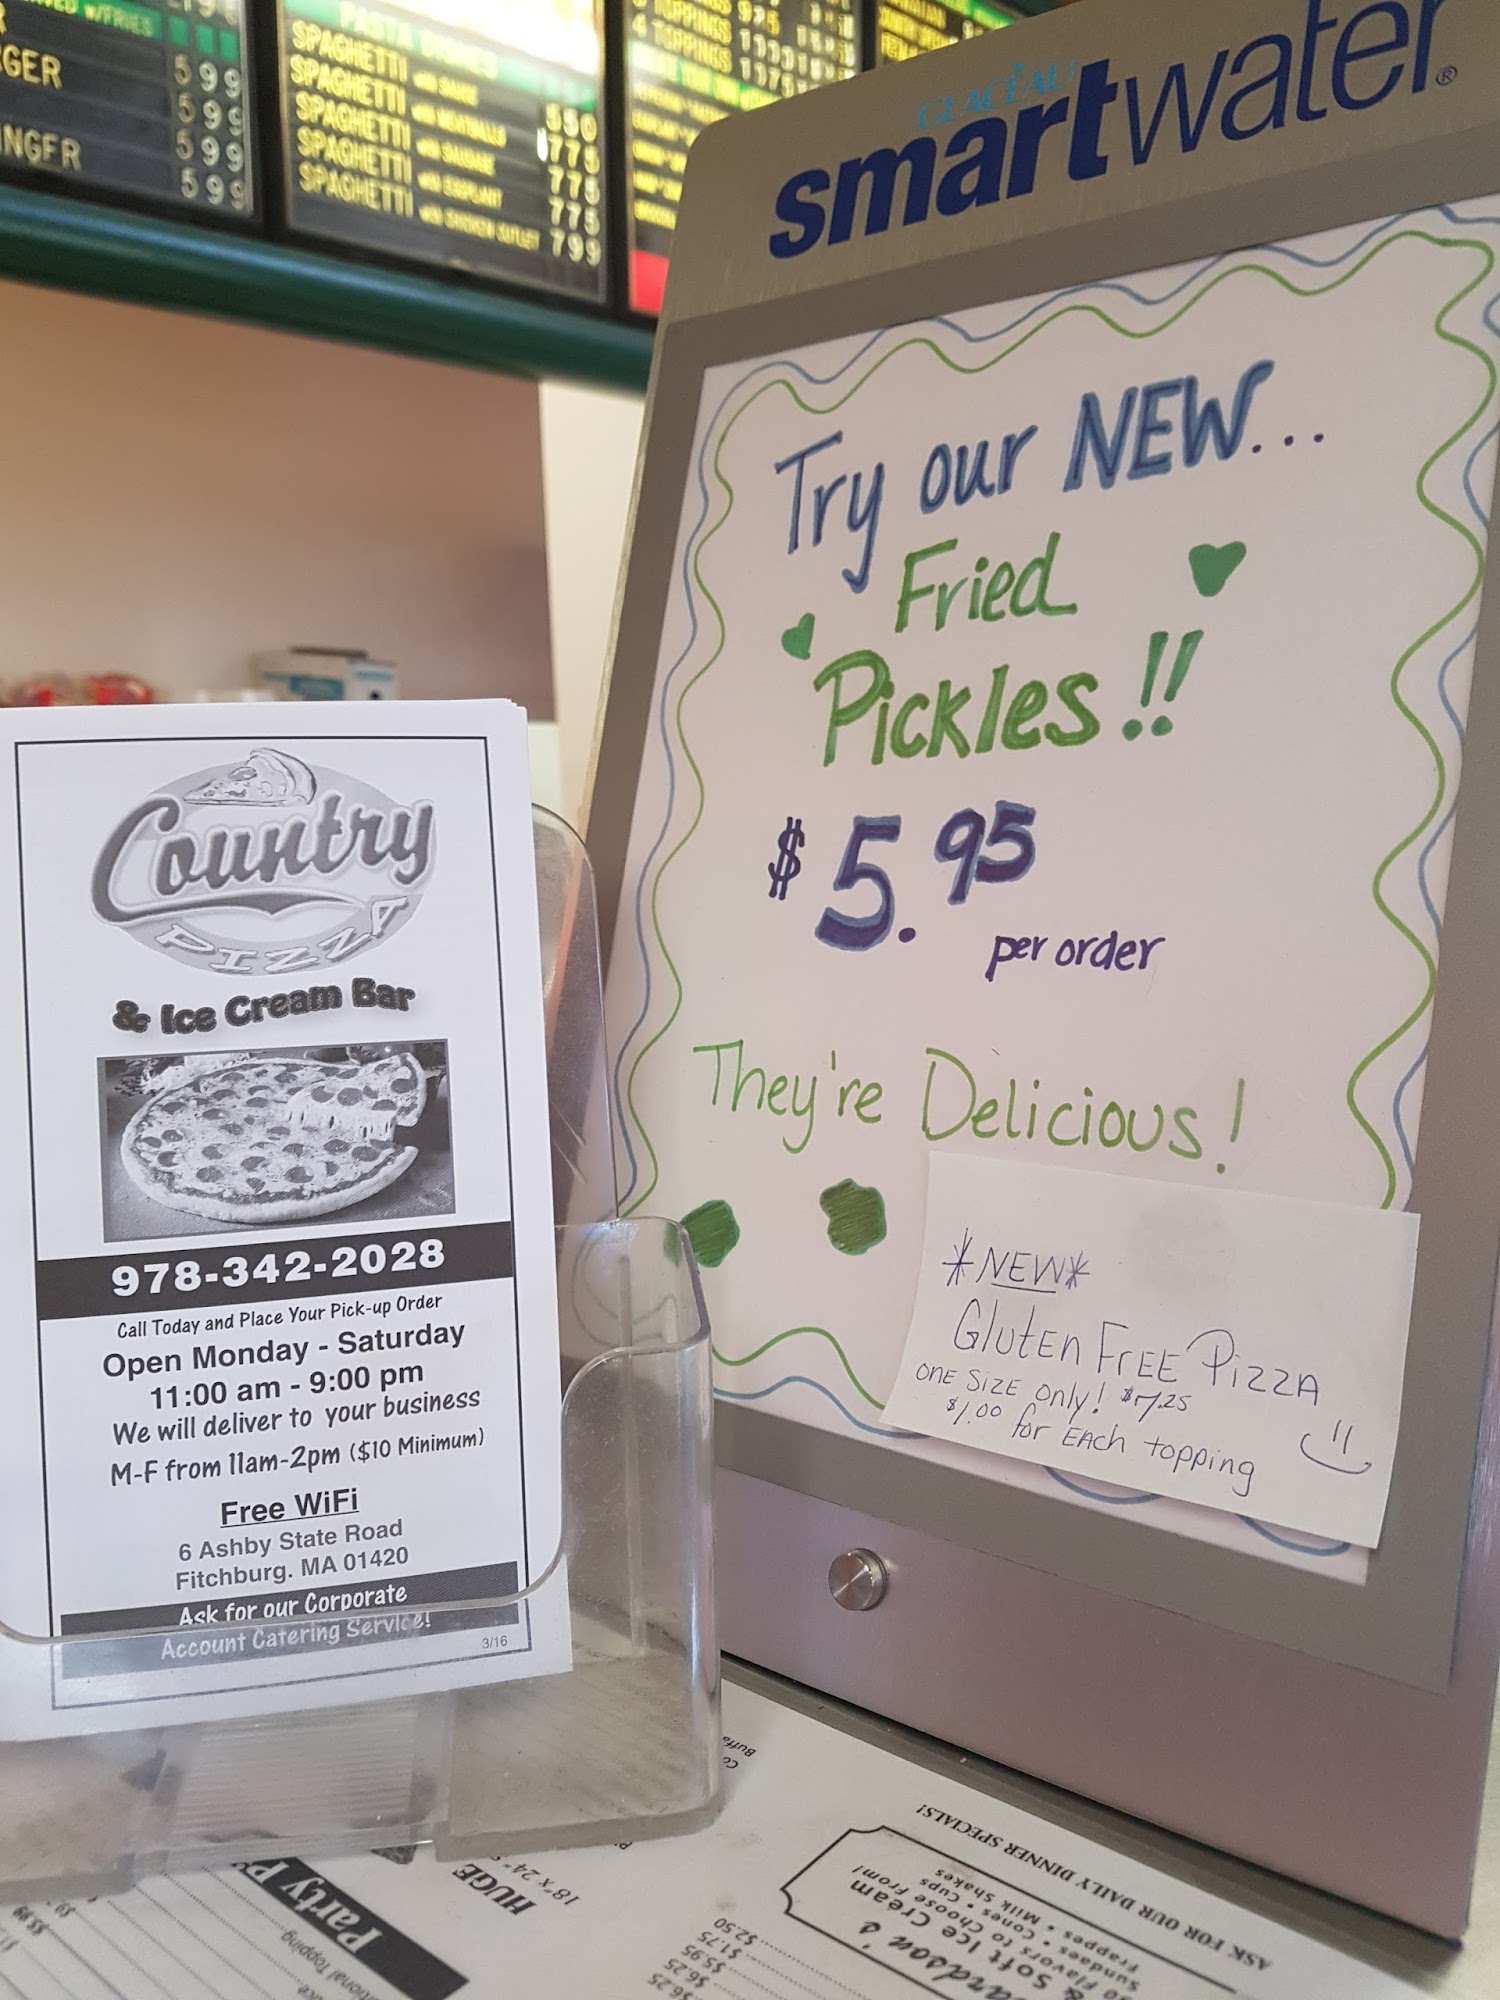 SERVED W/FRIES
599
599
599
599
PASTA DISHES
SPAGHETTI WITH SAUCE 550
SPAGHETTI WITH MEATBALLS 775
SPAGHETTI WITH SAUSAGE 775
SPAGHETTI WITH EGGPLANT 775
SPAGHETTI WITH CHICKEN CUTLET 799
TOPPINGS
4 TOPPINGS
GLACÉAU
smartwater®
Try our NEW...
Fried
Pickles!!
$5.95
per order
They're Delicious!
*NEW*
Gluten Free Pizza
ONE SIZE only! $7.25
$1.00 for Each topping
Country
PIZZA
& Ice Cream Bar
978-342-2028
Call Today and Place Your Pick-up Order
Open Monday - Saturday
11:00 am - 9:00 pm
We will deliver to your business
M-F from 11am-2pm ($10 Minimum)
Free WiFi
6 Ashby State Road
Fitchburg. MA 01420
Ask for our Corporate
Account Catering Service!
3/16
ASK FOR OUR DAILY DINNER SPECIALS!
Soft Ice Cream
Flavors to Choose From!
Sundaes • Cones • Cups
Frappes • Milk Shakes
HUGE
18"x 24"
$2.50
$1.75
$5.95
$6.25
$6.25
$5.99